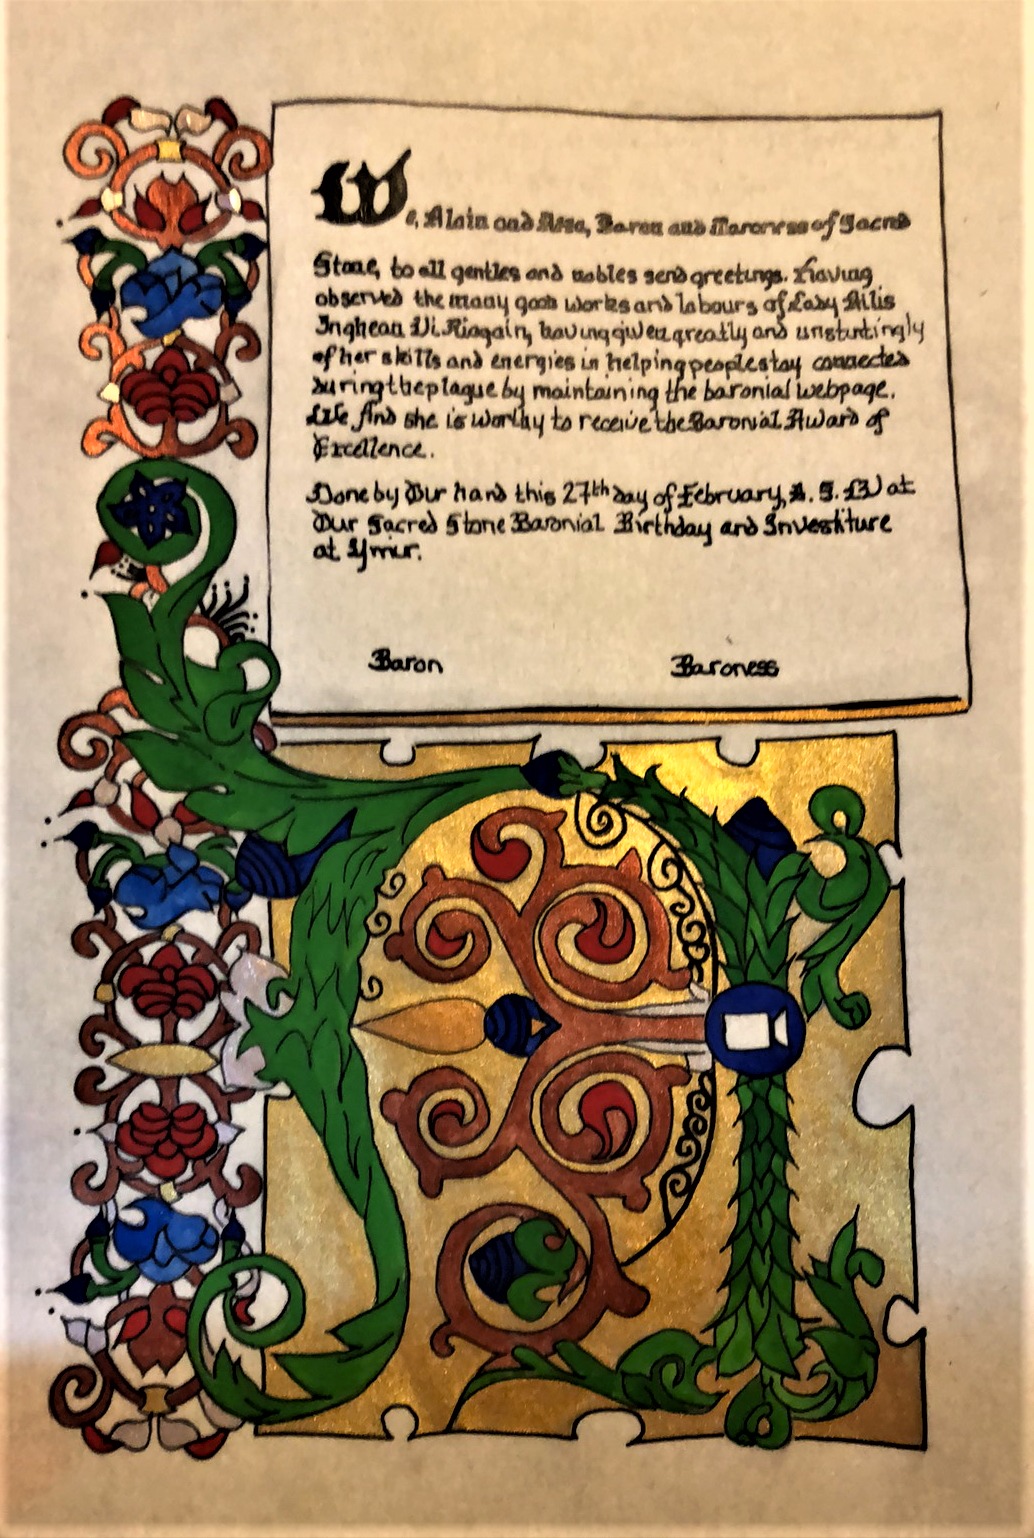 We, Alain and Arsa, Baron and Baroness of Sacred
Stone, to all gentles and nobles send greetings. Having
observed the many good works and labours of Lady Ailis
Inghean Ui Riagain, having given greatly and unstintingly
of her skills and energies in helping people stay connected
during the plague by maintaining the baronial webpage.
We find she is worthy to receive the Baronial Award of
Excellence.
Done by Our hand this 27th day of February, A. S. LV at
Our Sacred Stone Baronial Birthday and Investiture
at Ymir.
Baron Baroness